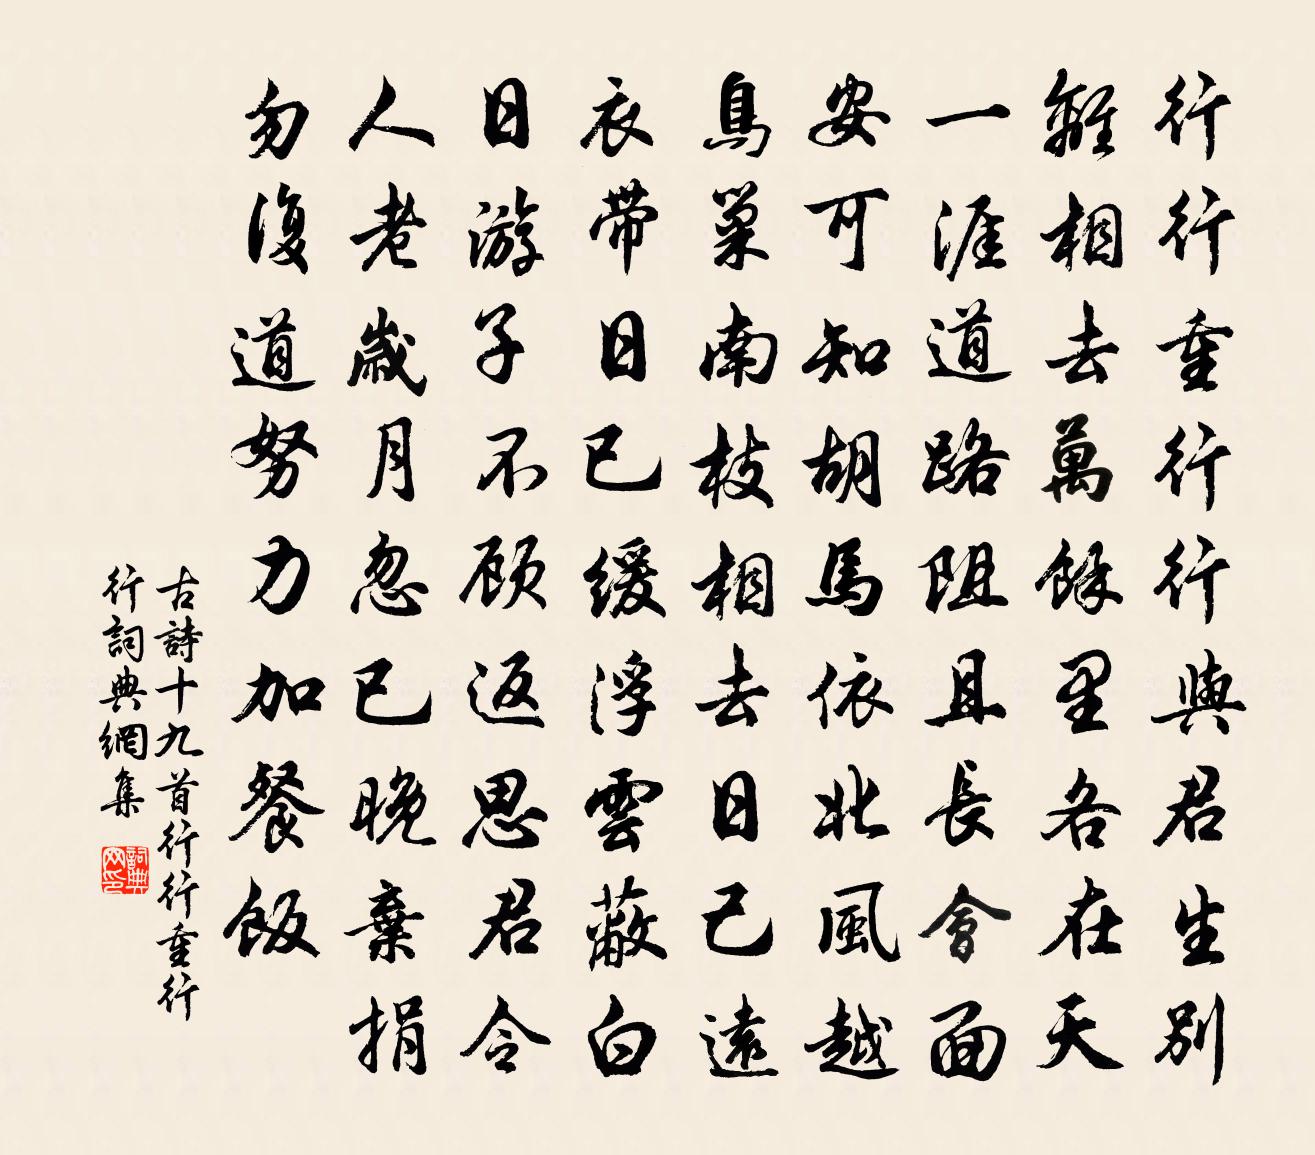 行行重行行與君生別
離相去萬餘里各在天
一涯道路阻且長會面
安可知胡馬依北風越
鳥巢南枝相去日已遠
衣带日已缓浮雲蔽白
日游子不顾返思君令
人老歲月忽已晚棄捐
勿復道努力加餐飯
古詩十九首行行重行
行詞典網集
詞典
网印